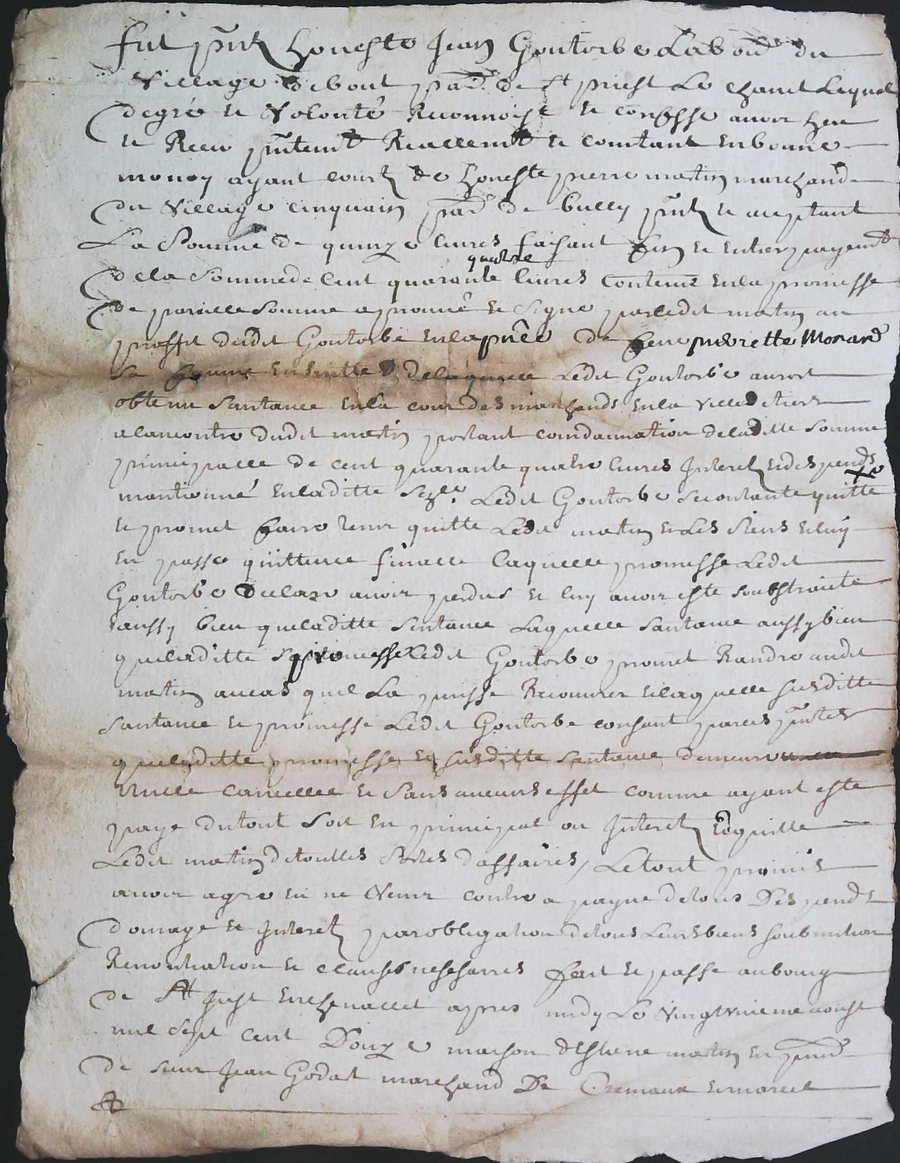 fut pnt honeste Jean Goutorbe Labour du
Village debout parr de st priest La
degré et Volonté Reconnoist et confesse avoir heu
et Receu Reallemt et comtant enbonne
monoy ayant cours de honeste pierre matin marchand
du Village cinquain parr de bully pnt et aceptant
La Somme de quinze livres faisant fin et entier payemt
quatre
dela somme de cent quarante livres contenue enla promesse
de pareille somme et signe parledit matin au
proffit dudit Goutorbe enla de pierrette Monard
sa femme en suitte delaquelle Ledit Goutorbe auroit
obtenu santance enla cour des marchands enla ville
alancontre dudit matin portant condannation deladitte somme
principalle de cent quarante quatre livres Interets et despends
mantionné enladitte Ledit Goutorbe se contante quitte
et promet faire tenir quitte Ledit matin et Les siens et luy
en passe quittence finalle laquelle promesse Ledit
Goutorbe declare avoir perdus et luy avoir esté soubstraite
aussy bien queladitte sentance Laquelle santance aussy bien
queladitte promesse Ledit Goutorbe promet Randre audit
matin aucas quil La puisse Recouvrer et laquelle susditte
santance et promesse Ledit Goutorbe consant par ces pntes
queladitte promesse et susditte santance
nulle cancellee et sans aucuns effet comme ayant esté
paye dutout soit en principal ou Interets
Ledit matin de touttes sortes daffaires, Letout promis
avoir agre et ne venir contre a payne detous Despends
domage et Interets par obligation detous Leurs biens
Renontiation et clauses nesesaires fait et passé au bourg
de st Just enchevallet apres midy Le
mil sept cent Douze maison dEstiene matin en
de sieur Jean Godat marchand De Cremaux